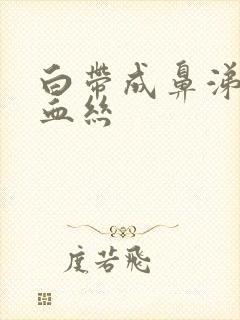 白帶成鼻涕
血絲
度若飛